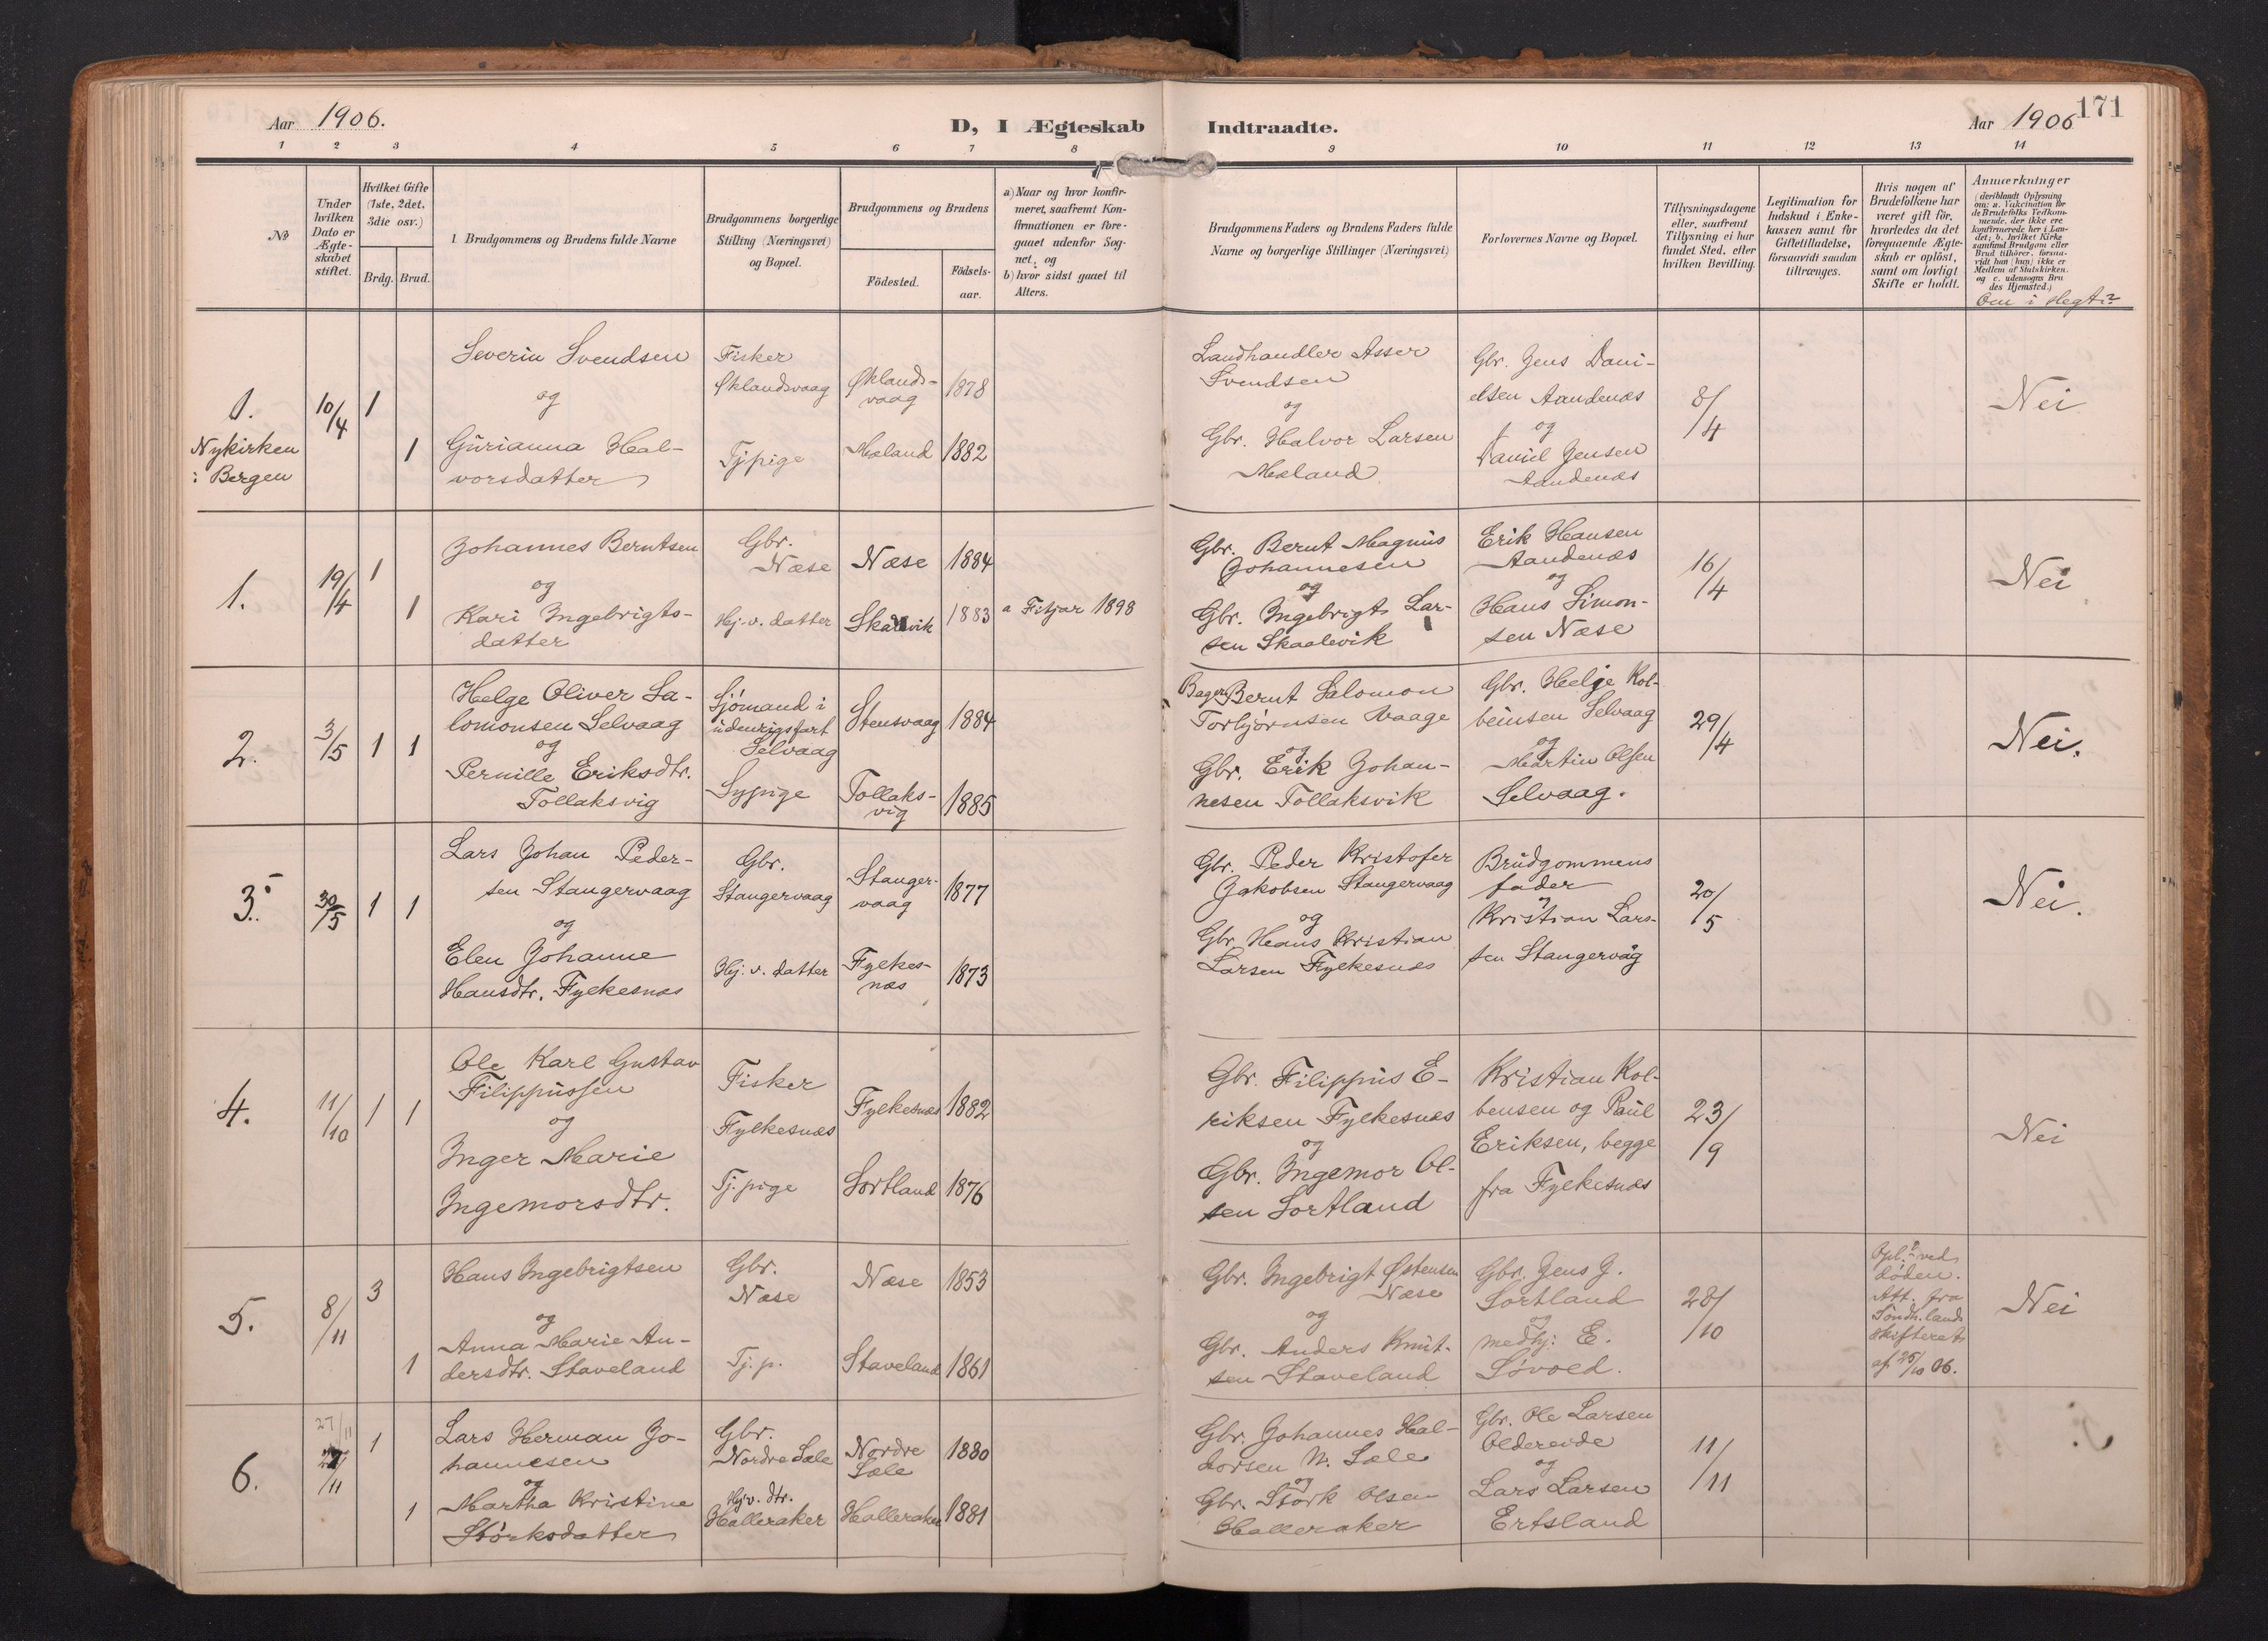 Aar 1906.
D, I Ægteskab
Indtraadte.
Aar 1906
171
1
2
3
4
5
6
7
8
9
10
11
12
13
14
No
Under hvilken Dato er Ægteskabet stiftet.
Hvilket Gifte (1ste, 2det, 3die osv.)
Brdg.
Brud.
Brudgommens og Brudens fulde Navne
Brudgommens borgerlige Stilling (Næringsvei) og Bopæl.
Brudgommens og Brudens
Födested.
Födsels-aar.
a) Naar og hvor konfir-
meret, saafremt Kon-
firmationen er fore-
gaaet udenfor Sog-
net; og
b) hvor sidst gaaet til
Alters.
Brudgommens Faders og Brudens Faders fulde
Navne og borgerlige Stillinger (Næringsvei)
Forlovernes Navne og Bopæl.
Tillysningsdagene
eller, saafremt
Tillysning ei har
fundet Sted, efter
hvilken Bevilling.
Legitimation for
Indskud i Enke-
kassen samt for
Giftetilladelse,
forsaavidt saadan
tiltrænges.
Hvis nogen af
Brudefolkene har
været gift för,
hvorledes da det
foregaaende Ægte-
skab er oplöst,
samt om lovligt
Skifte er holdt.
Anmærkninger
(deriblandt Oplysning
om: a. Vakcination for
de Brudefolks Vedkom-
mende, der ikke ere
konfirmerede her i Lan-
det; b. hvilket Kirke
samfund Brudgom eller
Brud tilhörer, forsaa-
vidt han (hun) ikke er
Medlem af Statskirken.
og c. udensogns Bru
des Hjemsted.)
Om i slegt?
1.
Nykirken
i Bergen
10/4
1
1
Severin Svendsen
og
Gurianna Hal-
vorsdatter
Fisker
Øklandsvaag
Tjpige
Øklands-
vaag
Mæland
1878
1882
Landhandler Asser
Svendsen
og
Gbr. Halvor Larsen
Mæland
Gbr. Jens Dani-
elsen Aandenæs
og
Daniel Jensen
Aandenæs
8/4
Nei
1.
19/4
1
1
Johannes Berntsen
og
Kari Ingebrigts-
datter
Gbr.
Næse
Hj. v. datter
Næse
1884
1883
a Fitjar 1898
Gbr. Bernt Magnus
Johannesen
og
Gbr. Ingebrigt Lar-
sen Skaalevik
Erik Hansen
Aandenæs
og
Hans Simon-
sen Næse
16/4
Nei
2.
3/5
1
1
Helge Oliver Sa-
lomonsen Selvaag
og
Pernille Eriksdtr.
Tollaksvig
Sjømand i
udenrigsfart
Selvaag
Sypige
Stensvaag
Tollaks-
vig
1884
1885
Bager Bernt Salomon
Torbjørnsen Vaage
og
Gbr. Erik Johan-
nesen Tollaksvik
Gbr. Helge Kol-
beinsen Selvaag
og
Martin Olsen
Selvaag.
29/4
Nei.
3.
30/5
1
1
Lars Johan Peder-
sen Stangervaag
og
Elen Johanne
Hansdtr. Fylkesnæs
Gbr.
Stangervaag
Hj. v. datter
Stanger-
vaag
Fylkes-
næs
1877
1873
Gbr. Peder Kristofer
Jakobsen Stangervaag
og
Gbr. Hans Kristian
Larsen Fylkesnæs
Brudgommens
fader
og
Kristian Lars-
sen Stangervåg
20/5
Nei.
4.
11/10
1
1
Ole Karl Gustav
Filippussen
og
Inger Marie
Ingemorsdtr.
Fisker
Fylkesnæs
Tj. pige
Fylkesnæs
Sortland
1882
1876
Gbr. Filippus E-
riksen Fylkesnæs
og
Gbr. Ingemor Ol-
sen Sortland
Kristian Kol-
bensen og Paul
Eriksen, begge
fra Fylkesnæs
23/9
Nei
5.
8/11
3
1
Hans Ingebrigtsen
og
Anna Marie An-
dersdtr. Staveland
Gbr.
Næse
Tj. p.
Næse
Staveland
1853
1861
Gbr. Ingebrigt Østensen
Næse
og
Gbr. Anders Knut-
sen Staveland
Gbr. Jens J.
Sortland
og
medhj: E.
Søvold.
28/10
Opl. ved
døden.
Att. fra
Söndh.lands
skifteret
af 25/10 06.
Nei
6.
27/11
27/11
1
1
Lars Herman Jo-
hannesen
og
Martha Kristine
Størksdatter
Gbr.
Nordre Sæle
Hj. v. dtr.
Halleraker
Nordre
Sæle
Halleraker
1880
1881
Gbr. Johannes Hal-
dorsen N. Sæle
og
Gbr. Størk Olsen
Halleraker
Gbr. Ole Larsen
Oldereide
og
Lars Larsen
Ertsland
11/11